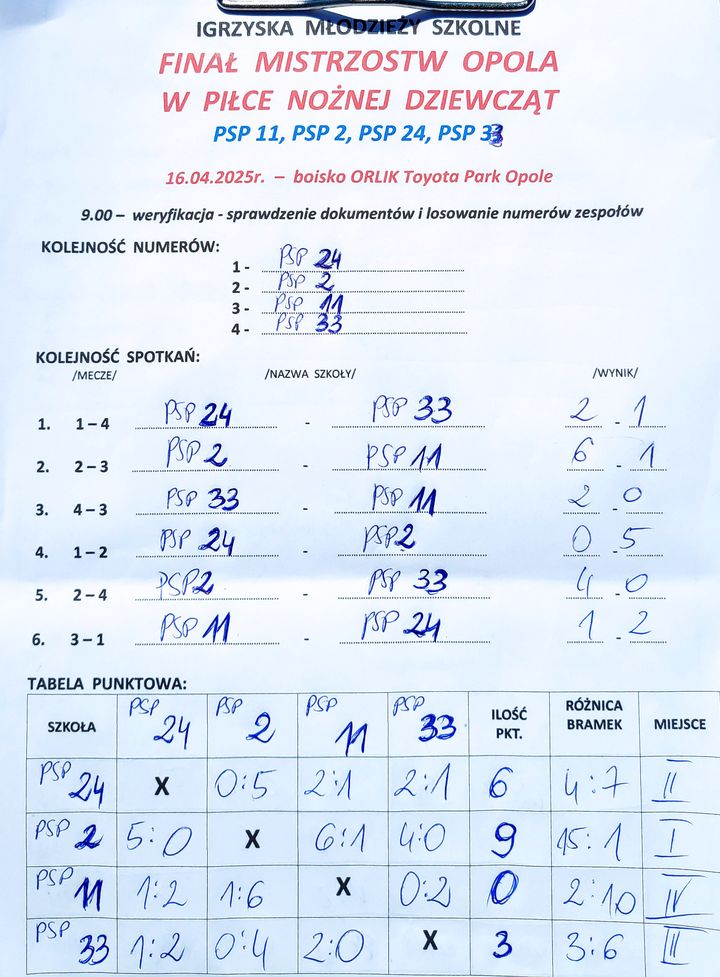 IGRZYSKA MŁODZIEŻY SZKOLNE
FINAŁ MISTRZOSTW OPOLA
W PIŁCE NOŻNEJ DZIEWCZĄT
PSP 11, PSP 2, PSP 24, PSP 33
16.04.2025r. – boisko ORLIK Toyota Park Opole
9.00 – weryfikacja - sprawdzenie dokumentów i losowanie numerów zespołów
KOLEJNOŚĆ NUMERÓW:
1 - PSP 24
2 - PSP 2
3 - PSP 11
4 - PSP 33
KOLEJNOŚĆ SPOTKAŃ:
/MECZE/ /NAZWA SZKOŁY/ /WYNIK/
1. 1 – 4 PSP 24 - PSP 33 2 - 1
2. 2 – 3 PSP 2 - PSP 11 6 - 1
3. 4 – 3 PSP 33 - PSP 11 2 - 0
4. 1 – 2 PSP 24 - PSP 2 0 - 5
5. 2 – 4 PSP 2 - PSP 33 4 - 0
6. 3 – 1 PSP 11 - PSP 24 1 - 2
TABELA PUNKTOWA:
SZKOŁA PSP 24 PSP 2 PSP 11 PSP 33 ILOŚĆ PKT. RÓŻNICA BRAMEK MIEJSCE
PSP 24 X 0:5 2:1 2:1 6 4:7 II
PSP 2 5:0 X 6:1 4:0 9 15:1 I
PSP 11 1:2 1:6 X 0:2 0 2:10 IV
PSP 33 1:2 0:4 2:0 X 3 3:6 III